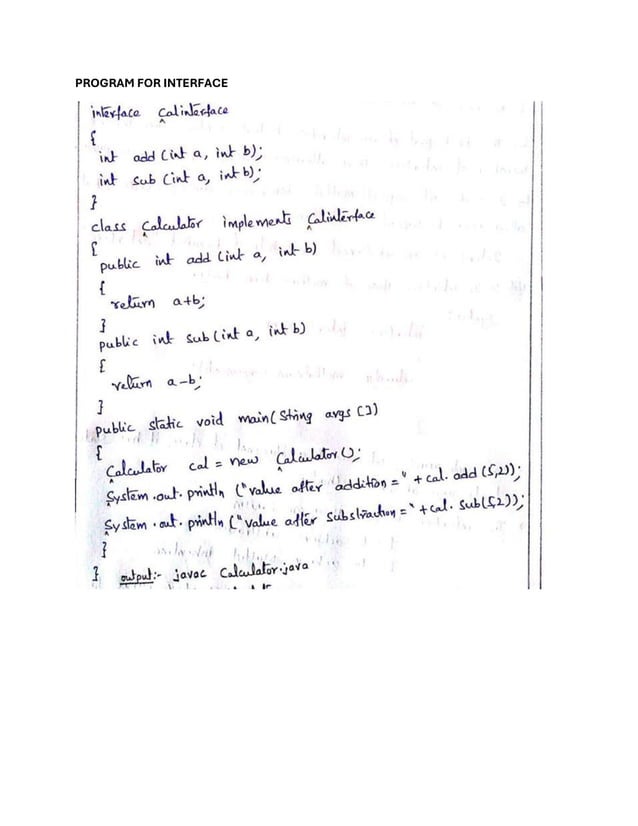 PROGRAM FOR INTERFACE
interface Calinterface
{
int add (int a, int b);
int sub (int a, int b);
}
class Calculator implements Calinterface
{
public int add (int a, int b)
{
return a+b;
}
public int sub (int a, int b)
{
return a-b;
}
public static void main( String args [])
{
Calculator cal = new Calculator ();
System.out.println ("value after addition =" + cal. add (5,2));
System.out.println ("value after substraction =" + cal. sub(5,2));
}
} output:- javac Calculator.java